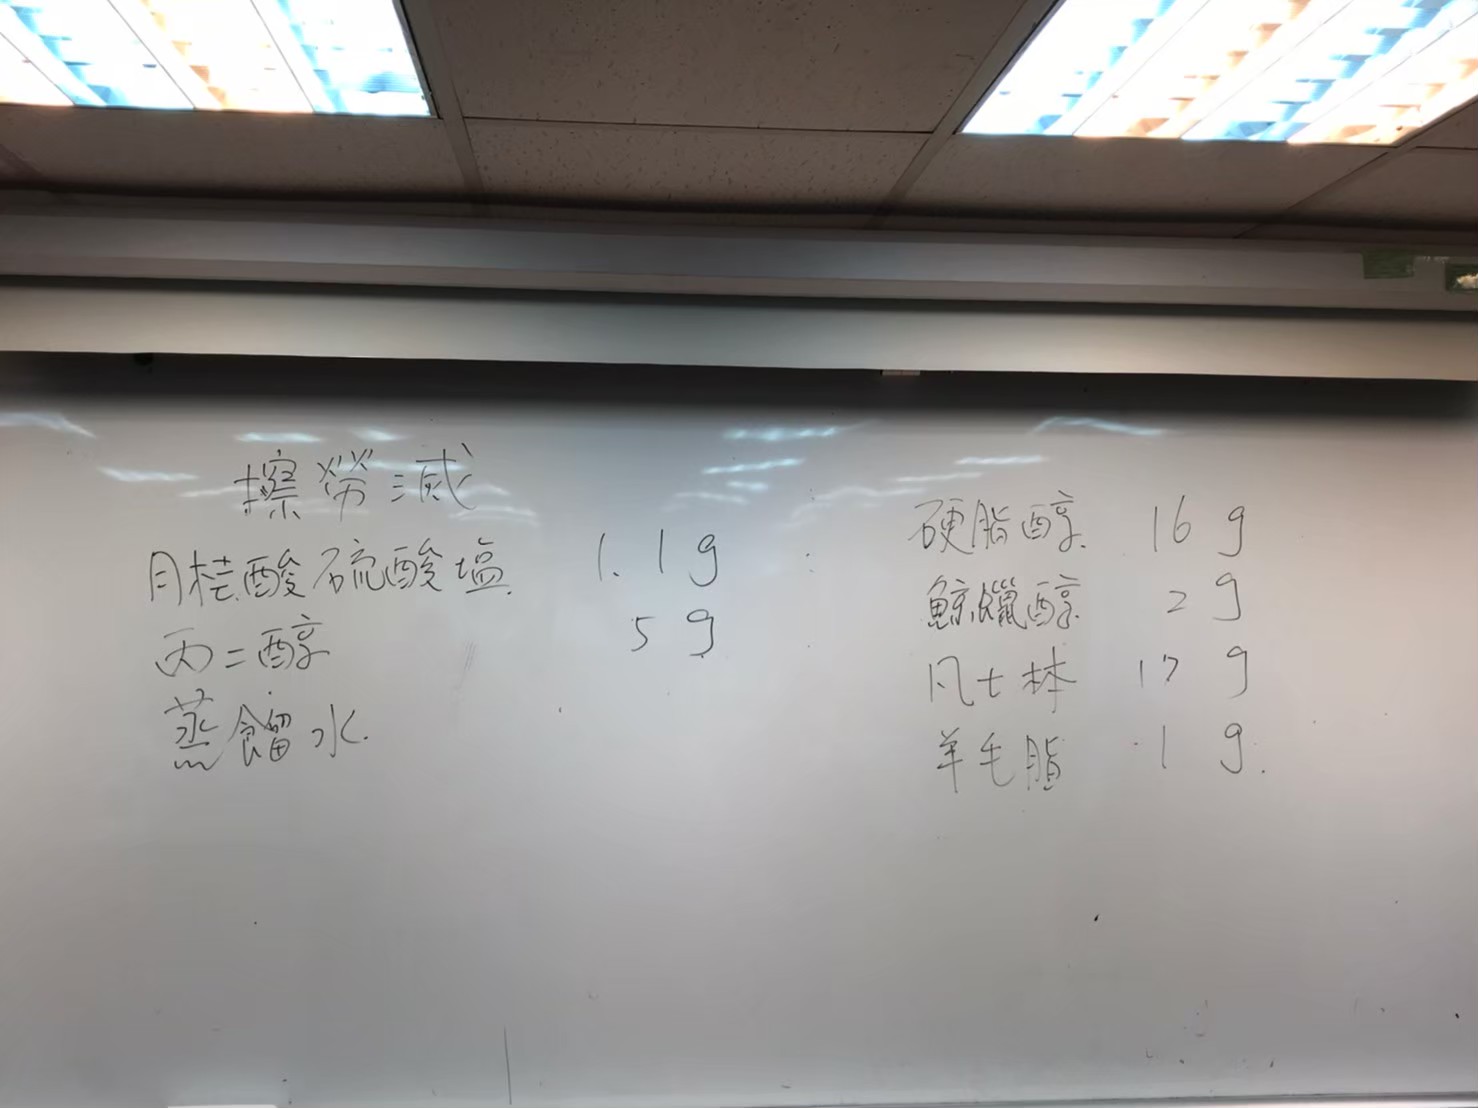 擦勞滅
月桂酸硫酸塩 1.1 g
丙二醇 5 g
蒸餾水
硬脂醇 16 g
鯨蠟醇 2 g
凡士林 17 g
羊毛脂 1 g